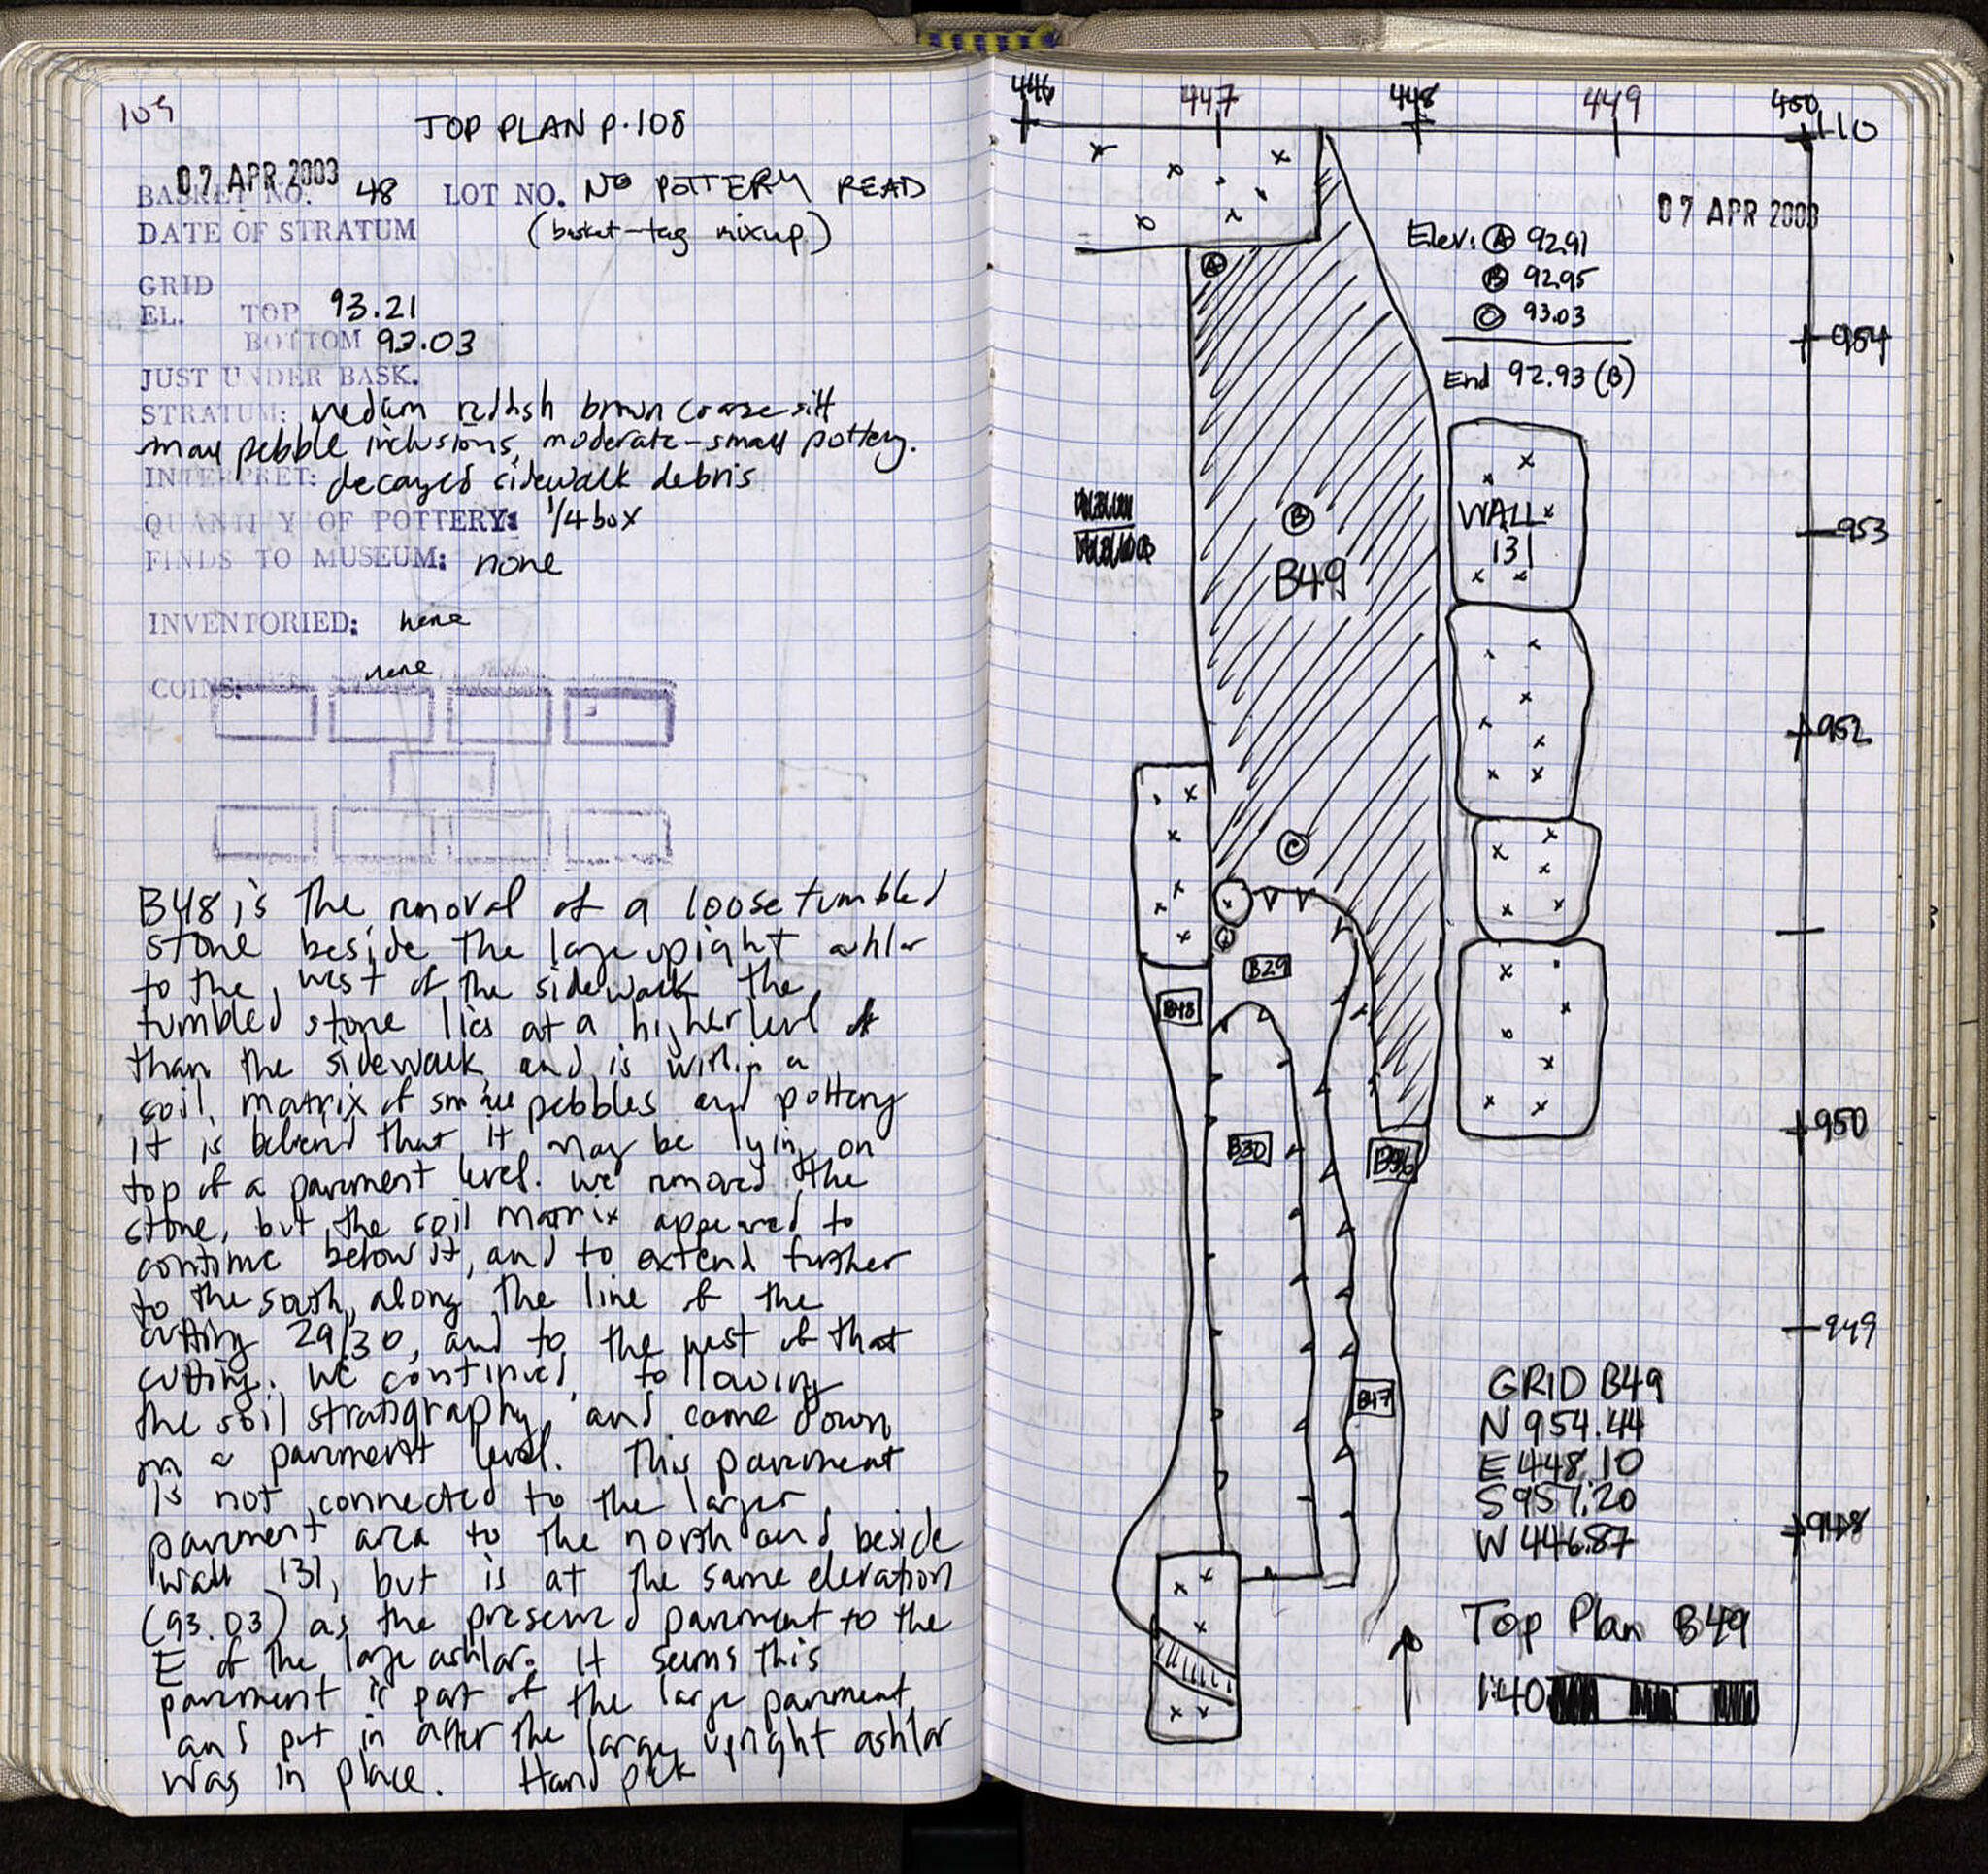 109
TOP PLAN p.108
07 APR 2003
BASKET NO. 48 LOT NO. NO POTTERY READ
DATE OF STRATUM (basket-tag mixup)
GRID
EL. TOP 93.21
BOTTOM 93.03
JUST UNDER BASK.
STRATUM: medium redish brown coarse silt
many pebble inclusions, moderate-small pottery.
INTERPRET: decayed sidewalk debris
QUANTITY OF POTTERY: 1/4 box
FINDS TO MUSEUM: none
INVENTORIED: none
none
COINS:
B48 is the removal of a loose tumbled
stone beside the large upright ashlar
to the west of the sidewalk the
tumbled stone lies at a higher level
than the sidewalk and is within a
soil matrix of small pebbles and pottery
it is believed that it may be lying on
top of a pavement level. We removed the
stone, but the soil matrix appeared to
continue below it, and to extend further
to the south, along the line of the
cutting 29/30, and to the west of that
cutting. We continued following
the soil stratigraphy, and came down
on a pavement level. This pavement
is not connected to the larger
pavement area to the north and beside
wall 131, but is at the same elevation
(93.03) as the preserved pavement to the
E of the large ashlar. It seems this
pavement is part of the large pavement
and put in after the large upright ashlar
was in place. Hand pick
446 447 448 449 450
110
07 APR 2003
Elev: A 92.91
B 92.95
C 93.03
End 92.93 (B)
A
954
WALL
131
B
953
B49
952
C
B29
B48
950
B30
949
B47
GRID B49
N 954.44
E 448.10
S 951.20
W 446.87
948
Top Plan B49
1:40